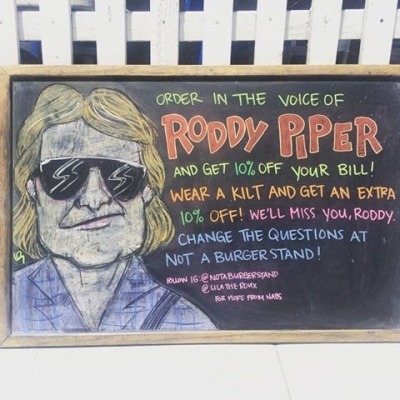 ORDER IN THE VOICE OF
RODDY PIPER
AND GET 10% OFF YOUR BILL!
WEAR A KILT AND GET AN EXTRA
10% OFF! WE'LL MISS YOU, RODDY.
CHANGE THE QUESTIONS AT
NOT A BURGER STAND!
FOLLOW IG: @NOTABURGERSTAND
@LILATHEROMX
FOR MORE FROM NABS